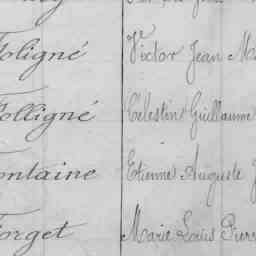 Foligné Victor Jean
Folligné Célestin Guillaume
Fontaine Etienne Auguste
Forget Marie Louis Pierre